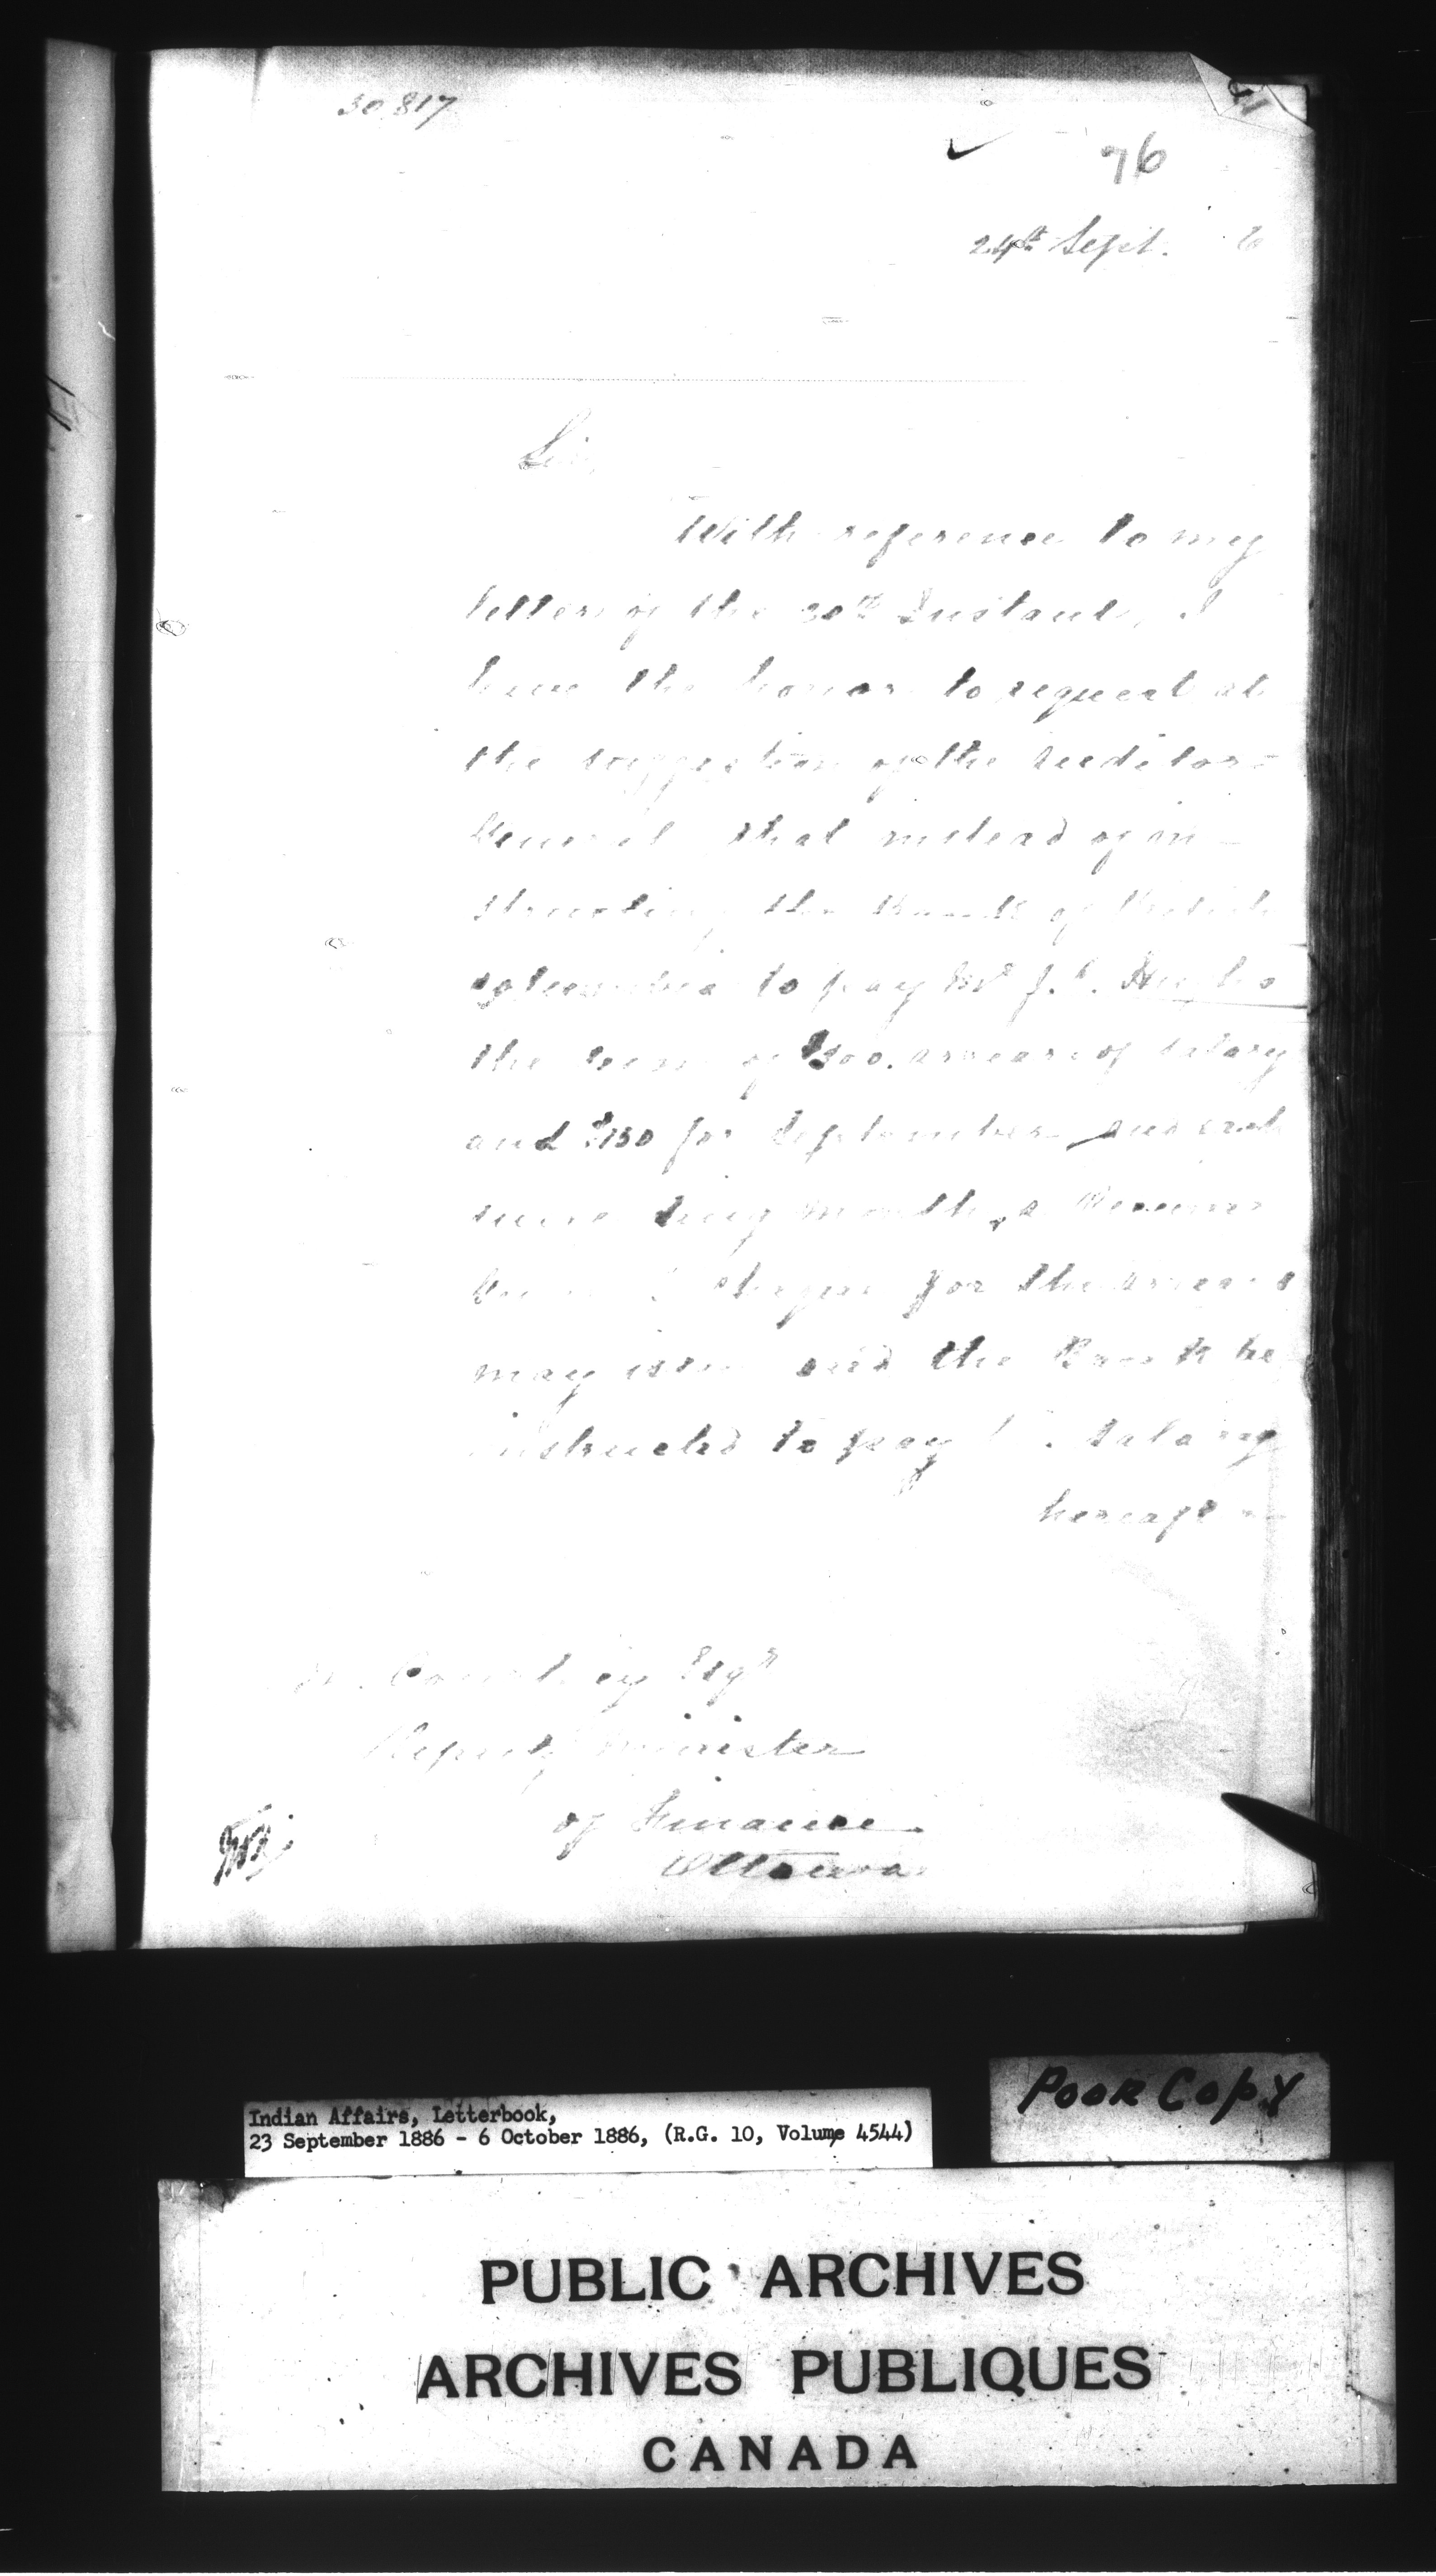 30,817
76
24th Sept. 6
Sir,
With reference to my
letter of the 20th Instant, I
have the honor to request at
the suggestion of the Auditor-
General that instead of in-
structing the Bank of British
Columbia to pay Mr J. C. Hughes
the sum of arrears of salary
and $150 for September and each
month, a
for the arrears
may issue and the Bank be
instructed to pay salary
hereafter
Courtney Esqr
Deputy Minister
of Finance
Ottawa
Poor Copy
Indian Affairs, Letterbook,
23 September 1886 - 6 October 1886, (R.G. 10, Volume 4544)
PUBLIC ARCHIVES
ARCHIVES PUBLIQUES
CANADA